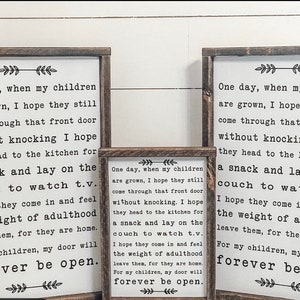 , when my children
wn, I hope they still
through that front door
t knocking. I hope
d to the kitchen for
nack and lay on the
to watch t.v.
they come in and feel
eight of adulthood
m, for they are home.
children, my door will
ever be open.
One day, when my children
are grown, I hope they still
come through that front door
without knocking. I hope
they head to the kitchen for
a snack and lay on the
couch to watch t.v.
I hope they come in and feel
the weight of adulthood
leave them, for they are home.
For my children, my door will
forever be open.
One day, when my
are grown, I hope
come through that
without knocking
they head to the
a snack and
couch to wat
I hope they come
the weight of
leave them, for
For my children,
forever be